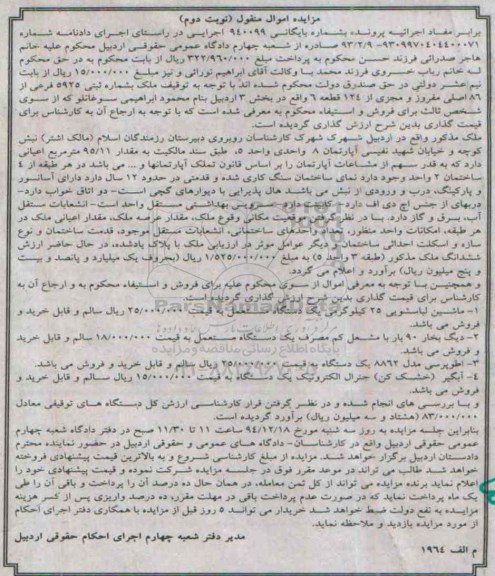 مزایده اموال منقول (نوبت دوم)
برابر مفاد اجرائیه پرونده بشماره بایگانی ۹۴۰۰۹۹ اجرایی در راستای اجرای دادنامه شماره
۹۳۰۹۹۷۰۴۰۴۴۰۰۰۷۱- ۹۳/۲/۹ صادره از شعبه چهارم دادگاه عمومی حقوقی اردبیل محکوم علیه خانم
هاجر صدرائی فرزند حسن محکوم به پرداخت مبلغ ۳۲۲/۹۶۰/۰۰۰ ریال از بابت محکوم به در حق محکوم
له خانم رباب خسروی فرزند محمد با وکالت آقای ابراهیم نورانی و نیز مبلغ ۱۵/۰۰۰/۰۰۰ ریال از بابت
نیم عشر دولتی در حق صندوق دولت محکوم شده اند با توجه به توقیف ملک بشماره ثبتی ۵۹۲۵ فرعی از
۸۶ اصلی مفروز و مجزی از ۱۲۴ قطعه ۶ واقع در بخش ۳ اردبیل بنام محمود ابراهیمی سوغانلو که از سوی
شخص ثالث برای فروش و استیفاء محکوم به معرفی شده است که با توجه به ارجاع آن به کارشناس برای
قیمت گذاری بدین شرح ارزش گذاری گردیده است.
ملک مذکور واقع در اردبیل شهرک کارشناسان روبروی دبیرستان رزمندگان اسلام (مالک اشتر) نبش
کوچه و خیابان شهید تقی پور آپارتمان ۸ واحدی واحد ۵، طبق سند مالکیت به مقدار ۹۵/۱۱ مترمربع اعیانی
دارد که به قدر سهم از مشاعات آپارتمان را بر اساس قانون تملک آپارتمانها و ... می باشد در هر طبقه از ۴
ساختمان ۲ واحد وجود دارد نمای ساختمان سنگ کاری شده و قدمتی در حدود ۱۲ سال دارد دارای آسانسور
و پارکینگ، درب و ورودی از نبش می باشند هال پذیرایی با دیوارهای گچی است- دو اتاق خواب دارد-
دربهای از جنس اچ دی اف دارد - کابینت دارد - سرویس بهداشتی مستقل واحد است- انشعابات مستقل
آب، برق و گاز دارد. بنا در نظر گرفتن موقعیت مکانی وقوع ملک، مقدار عرصه ملک، مقدار اعیانی ملک در
هر طبقه، امکانات واحد منظور، تعداد واحدهای ساختمانی، انشعابات مستقل موجود، قدمت ساختمان و نوع
سازه و اسکلت احداثی ساختمان و دیگر عوامل موثر در ارزیابی ملک با پلاک یادشده، در حال حاضر ارزش
ششدانگ ملک مذکور (طبقه ۳ واحد ۵) به مبلغ ۱/۵۲۵/۰۰۰/۰۰۰ ریال (بحروف یک میلیارد و پانصد و بیست
و پنج میلیون ریال) برآورد و اعلام می گردد.
و همچنین با توجه به معرفی اموال از سوی محکوم علیه برای فروش و استیفاء محکوم به و ارجاع آن به
کارشناس برای قیمت گذاری بدین شرح ارزش گذاری گردیده است.
۱- ماشین لباسشویی ۲۵ کیلوگرمی یک دستگاه به قیمت ۲۵/۰۰۰/۰۰۰ ریال سالم و قابل خرید و
فروش می باشد.
۲- دیگ بخار ۹۰ بار با مشعل کم مصرف یک دستگاه مستعمل به قیمت ۱۸/۰۰۰/۰۰۰ سالم و قابل خرید
و فروش می باشد.
۳- اطوپرسی مدل ۸۸۶۲ یک دستگاه به قیمت ۲۵/۰۰۰/۰۰۰ ریال سالم و قابل خرید و فروش می باشد.
۴- آبگیر (خشک کن) جنرال الکترونیک یک دستگاه به قیمت ۱۵/۰۰۰/۰۰۰ ریال سالم و قابل خرید و
فروش می باشد.
و با بررسی های انجام شده و در نظر گرفتن قرار کارشناسی ارزش کل دستگاه های توقیفی معادل
۸۳/۰۰۰/۰۰۰ (هشتاد و سه میلیون ریال) برآورد گردیده است.
بنابراین جلسه مزایده به روز سه شنبه مورخ ۹۴/۱۲/۱۸ ساعت ۱۱ تا ۱۱/۳۰ صبح در دفتر دادگاه شعبه چهارم
عمومی حقوقی اردبیل واقع در کارشناسان- دادگاه های عمومی و حقوقی اردبیل در حضور نماینده محترم
دادستان اردبیل برگزار خواهد شد. مزایده از مبلغ کارشناسی شروع و به بالاترین قیمت پیشنهادی فروخته
خواهد شد طالب می تواند در موعد مقرر فوق در جلسه مزایده شرکت نموده و قیمت پیشنهادی خود را
اعلام نماید برنده مزایده می تواند از کل ثمن معامله، در همان حال ده درصد آن را پرداخت و باقی آن را طی
یک ماه پرداخت نماید که در صورت عدم پرداخت باقی در مهلت مقرر، ده درصد واریزی پس از کسر هزینه
مزایده به نفع دولت ضبط خواهد شد خریدار می تواند ۵ روز قبل از مزایده با همکاری دفتر اجرای احکام
از مورد مزایده بازدید و ملاحظه نماید.
مدیر دفتر شعبه چهارم اجرای احکام حقوقی اردبیل
م الف ۱۹۶۴